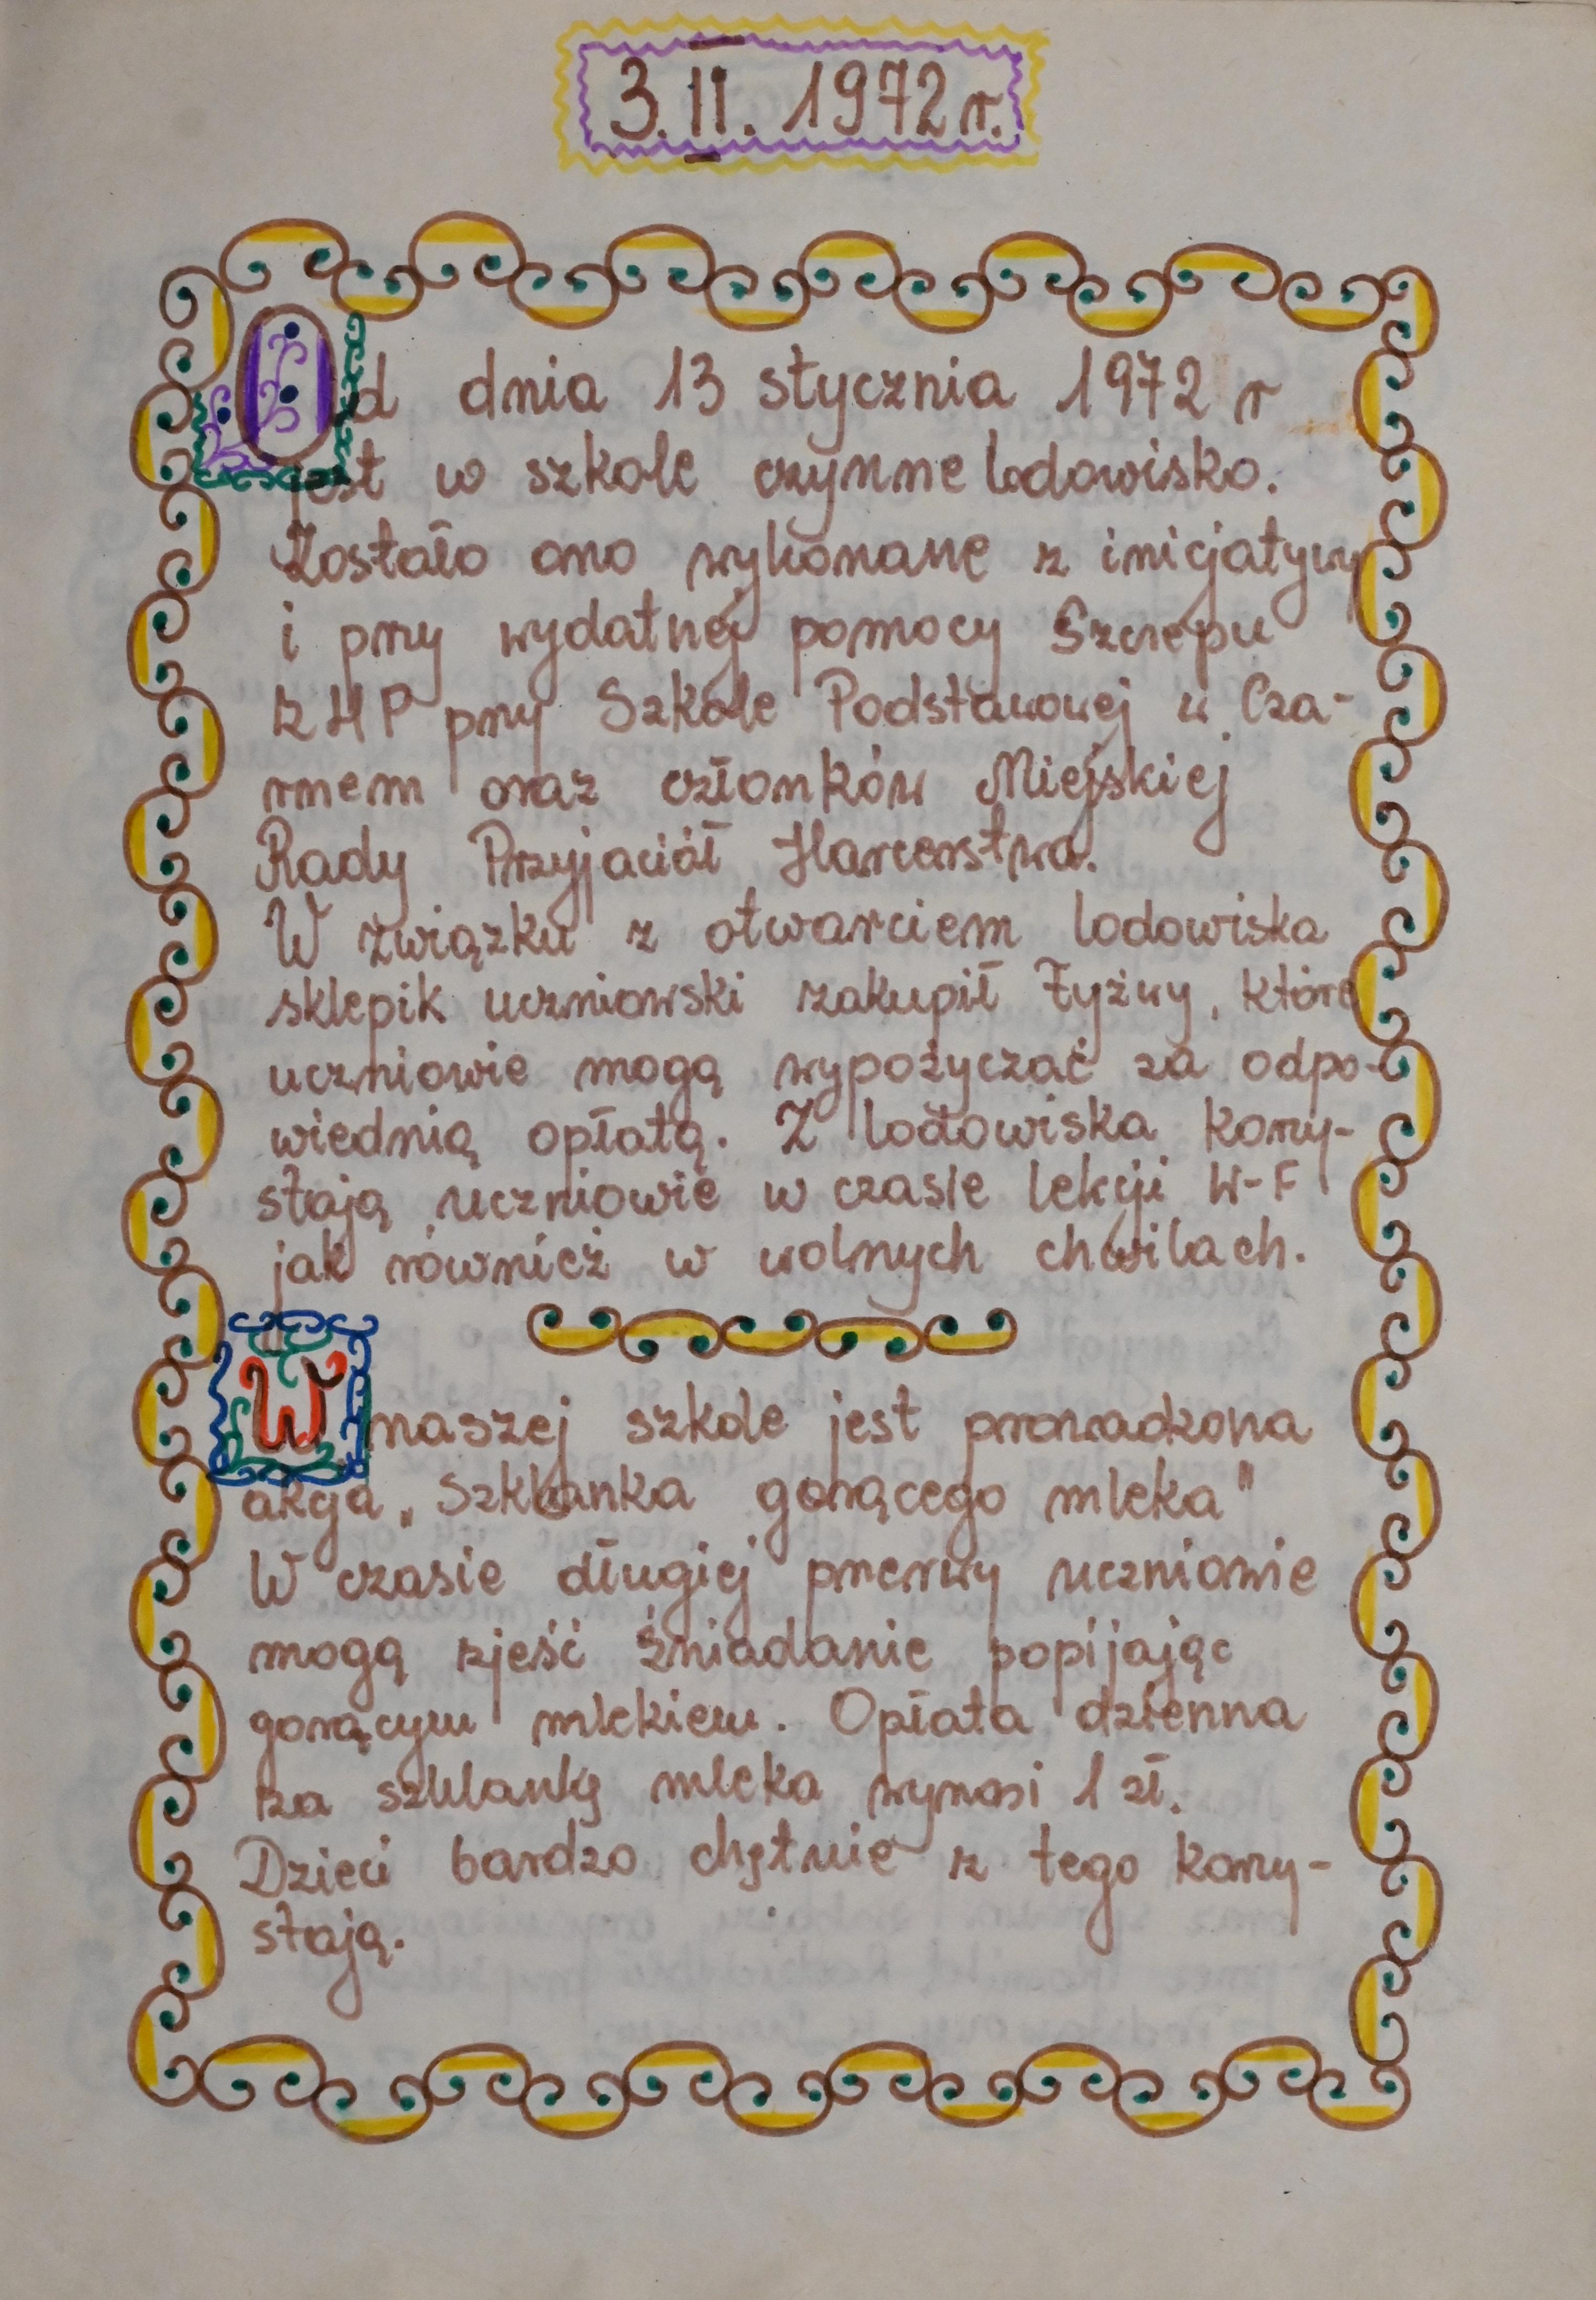 3.II.1972 r.
Od dnia 13 stycznia 1972 r
jest w szkole czynne lodowisko.
Zostało ono wykonane z inicjatywy
i przy wydatnej pomocy Szczepu
ZHP przy Szkole Podstawowej w Cza-
rnem oraz członków Miejskiej
Rady Przyjaciół Harcerstwa.
W związku z otwarciem lodowiska
sklepik uczniowski zakupił łyżwy, które
uczniowie mogą wypożyczać za odpo-
wiednią opłatą. Z lodowiska korzy-
stają uczniowie w czasie lekcji W-F
jak również w wolnych chwilach.
W naszej szkole jest prowadzona
akcja „Szklanka gorącego mleka"
W czasie długiej przerwy uczniowie
mogą zjeść śniadanie popijając
gorącym mlekiem. Opłata dzienna
za szklankę mleka wynosi 1 zł.
Dzieci bardzo chętnie z tego korzy-
stają.